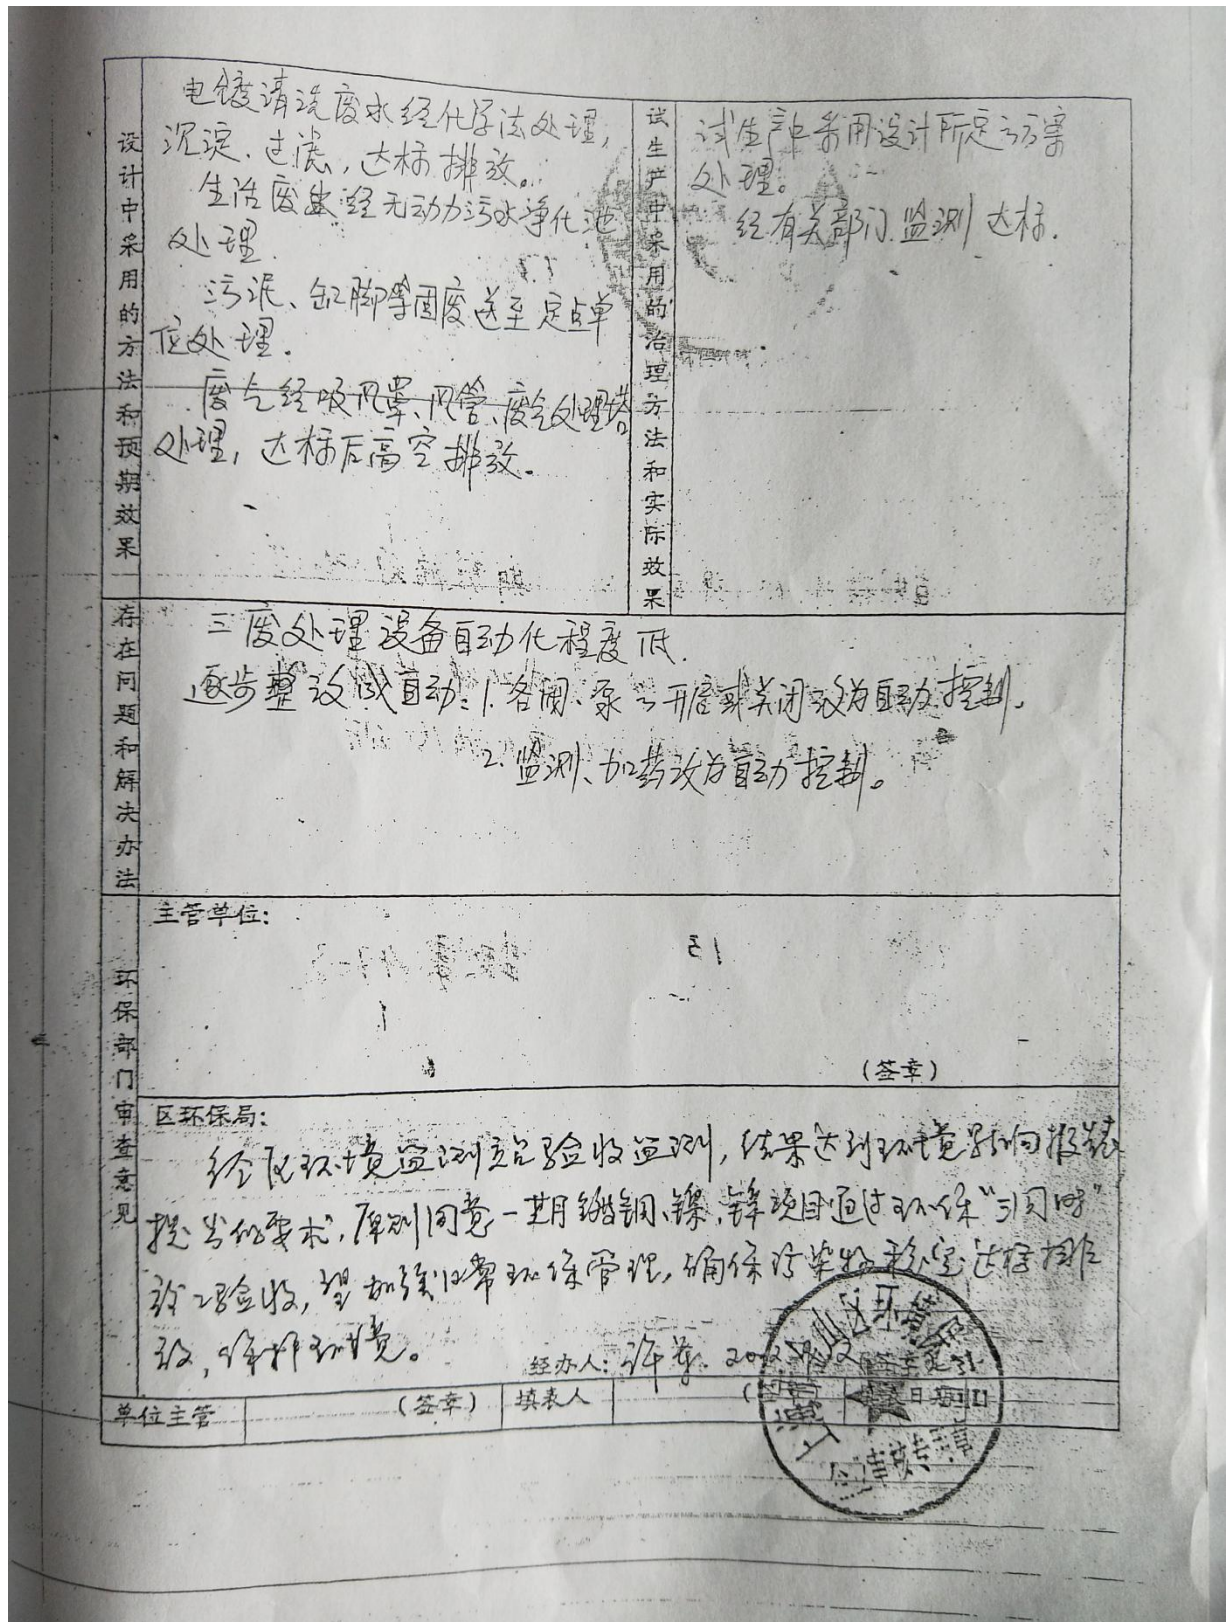 设计中采用的方法和预期效果
电镀清洗废水经化学法处理,
沉淀、过滤,达标排放。
生活废水经无动力污水净化池
处理.
污泥、缸脚等固废送至定点单
位处理.
废气经吸风罩、风管、废气处理塔
处理,达标后高空排放.
试生产中采用的治理方法和实际效果
试生产中采用设计所定之方案
处理。
经有关部门监测达标.
存在问题和解决办法
三废处理设备自动化程度低.
逐步整改成自动:1.各阀、泵之开启或关闭改为自动控制.
2.监测、加药改为自动控制。
环保部门审查意见
主管单位:
(签章)
区环保局:
经区环境监测站验收监测,结果达到环境影响报告表
提出的要求,原则同意一期镀铜、镍、锌项目通过环保“三同时”
竣工验收,望加强日常环保管理,确保污染物稳定达标排
放,保护环境。
经办人:许
单位主管
(签章)
填表人
山区环
审核专用章